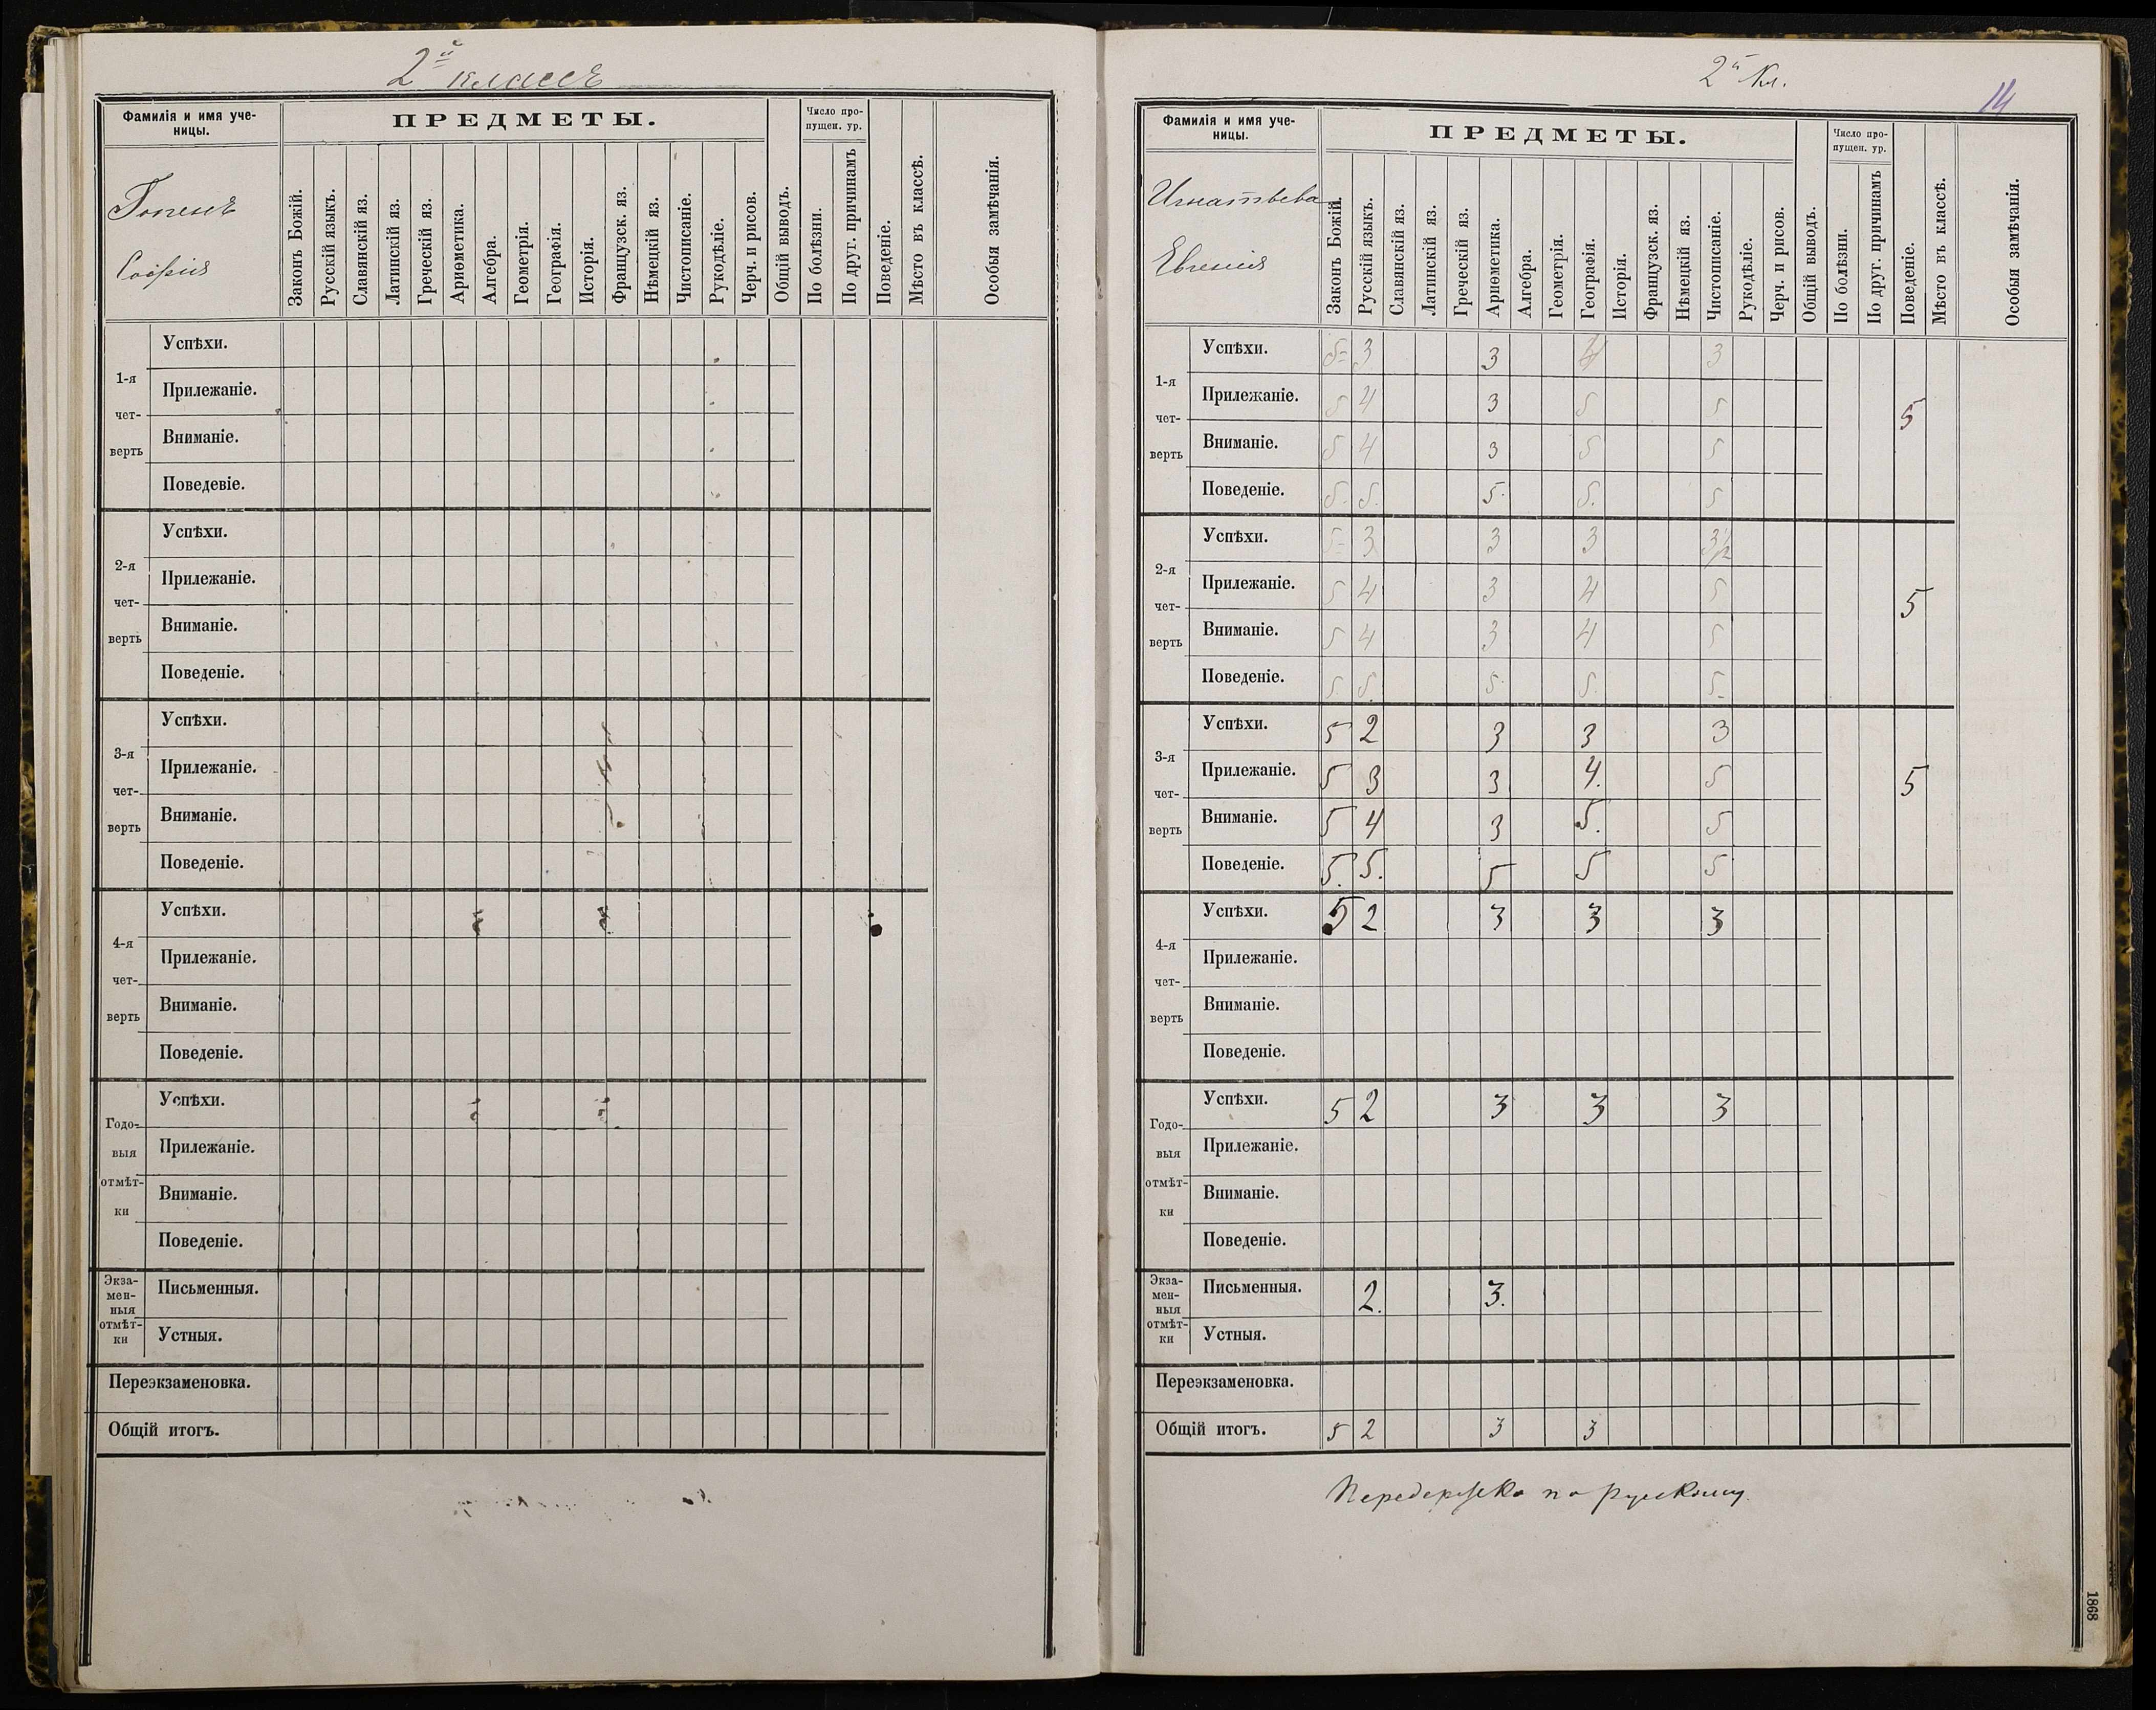 2й классъ
Фамилія и имя уче-
ницы.
ПРЕДМЕТЫ.
Число про-
пущен. ур.
Софія
Законъ Божій.
Русскій языкъ.
Славянскій яз.
Латинскій яз.
Греческій яз.
Ариѳметика.
Алгебра.
Геометрія.
Географія.
Исторія.
Французск. яз.
Нѣмецкій яз.
Чистописаніе.
Рукодѣліе.
Черч. и рисов.
Общій выводъ.
По болѣзни.
По друг. причинамъ
Поведеніе.
Мѣсто въ классѣ.
Особыя замѣчанія.
1-я
чет-
верть
Успѣхи.
Прилежаніе.
Вниманіе.
Поведевіе.
2-я
чет-
верть
Успѣхи.
Прилежаніе.
Вниманіе.
Поведеніе.
3-я
чет-
верть
Успѣхи.
Прилежаніе.
Вниманіе.
Поведеніе.
4-я
чет-
верть
Успѣхи.
Прилежаніе.
Вниманіе.
Поведеніе.
Годо-
выя
отмѣт-
ки
Успѣхи.
Прилежаніе.
Вниманіе.
Поведеніе.
Экза-
мен-
ныя
отмѣт-
ки
Письменныя.
Устныя.
Переэкзаменовка.
Общій итогъ.
2й Кл.
14
Фамилія и имя уче-
ницы.
ПРЕДМЕТЫ.
Число про-
пущен. ур.
Игнатьева
Евгенія
Законъ Божій.
Русскій языкъ.
Славянскій яз.
Латинскій яз.
Греческій яз.
Ариѳметика.
Алгебра.
Геометрія.
Географія.
Исторія.
Французск. яз.
Нѣмецкій яз.
Чистописаніе.
Рукодѣліе.
Черч. и рисов.
Общій выводъ.
По болѣзни.
По друг. причинамъ
Поведеніе.
Мѣсто въ классѣ.
Особыя замѣчанія.
1-я
чет-
верть
Успѣхи. 5= 3 3 4 3
Прилежаніе. 5 4 3 5 5
5
Вниманіе. 5 4 3 5 5
Поведеніе. 5. 5. 5. 5. 5
2-я
чет-
верть
Успѣхи. 5= 3 3 3 3½
Прилежаніе. 5 4 3 4 5
5
Вниманіе. 5 4 3 4 5
Поведеніе. 5. 5. 5. 5. 5.
3-я
чет-
верть
Успѣхи. 5 2 3 3 3
Прилежаніе. 5 3 3 4. 5
5
Вниманіе. 5 4 3 5. 5
Поведеніе. 5. 5. 5 5 5
4-я
чет-
верть
Успѣхи. 5 2 3 3 3
Прилежаніе.
Вниманіе.
Поведеніе.
Годо-
выя
отмѣт-
ки
Успѣхи. 5 2 3 3 3
Прилежаніе.
Вниманіе.
Поведеніе.
Экза-
мен-
ныя
отмѣт-
ки
Письменныя. 2. 3.
Устныя.
Переэкзаменовка.
Общій итогъ. 5 2 3 3
Передержка по русскому
1868